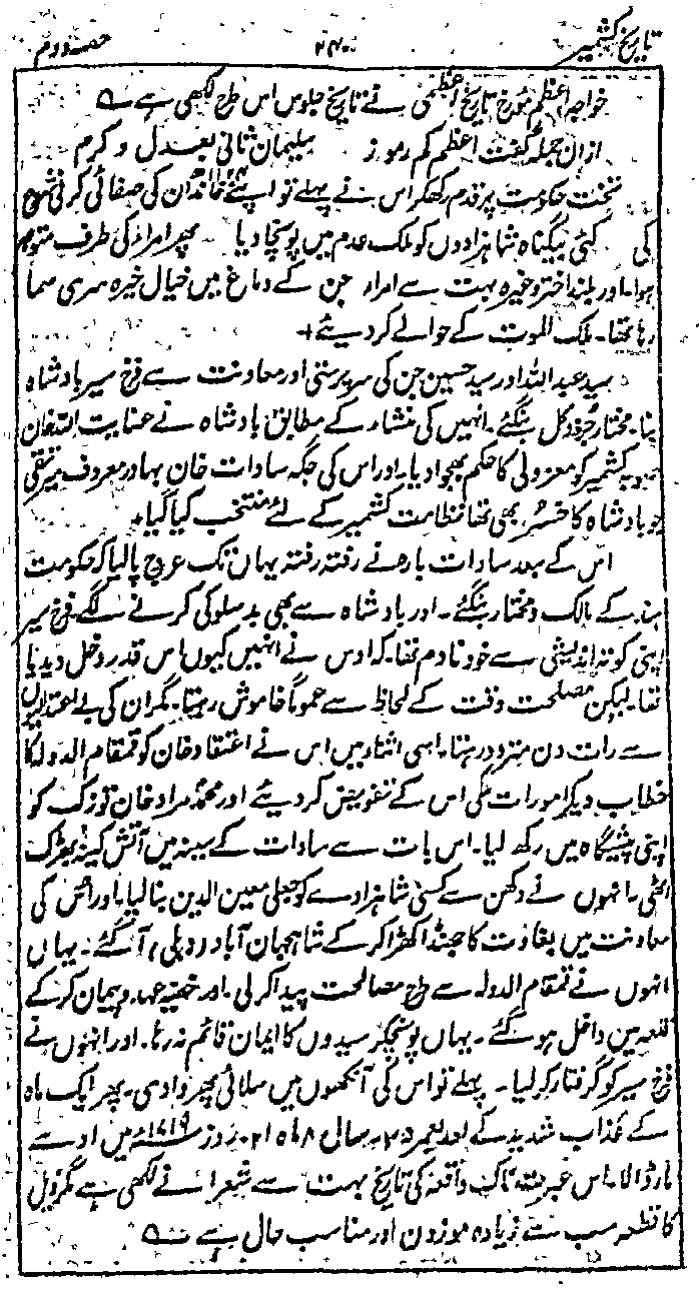 تاریخ کشمیر ۲۴۰ حصہ دوم
خواجہ اعظم مورخ تاریخ اعظمی نے تاریخ جلوس اس طرح لکھی ہے ؎
ازان جملہ گفت اعظم کم رموز سلیمان ثانی بعدل و کرم
تخت حکومت پر قدم رکھکر اس نے پہلے تو اپنے خاندان کی صفائی کرنی شروع
کی کئی بیگناہ شاہزادوں کو ملک عدم میں پہونچا دیا ۔ پھر امراء کی طرف متوجہ
ہوا۔ اور بلند اختر وغیرہ بہت سے امراء جن کے دماغ میں خیال خیرہ سری سما
رہا تھا۔ ملک الموت کے حوالے کر دیئے +
سید عبداللہ اور سید حسین جن کی سرپرستی اور معاونت سے فرخ سیر بادشاہ
بنا۔ مختار جزو کل بنگئے۔ انہیں کی منشاء کے مطابق بادشاہ نے عنایت اللہ خان
صوبہ کشمیر کو معزولی کا حکم بھجوا دیا۔ اور اس کی جگہ سادات خان بہادر معروف میر تقی
جو بادشاہ کا خسر بھی تھا نظامت کشمیر کے لئے منتخب کیا گیا +
اس کے بعد سادات بارہ نے رفتہ رفتہ یہان تک عروج پا لیا کہ حکومت
ہند کے مالک و مختار بنگئے ۔ اور بادشاہ سے بھی بدسلوکی کرنے لگے۔ فرخ سیر
اپنی کوتہ اندیشی سے خود نادم تھا۔ کہ اوس نے انہیں کیوں اس قدر دخل دیدیا
تھا۔ لیکن مصلحت وقت کے لحاظ سے عموماً خاموش رہتا۔ مگر ان کی بے اعتدالیوں
سے رات دن متردد رہتا۔ اسی اثناء میں اس نے اعتقاد خان کو قمقام الدولہ کا
خطاب دیکر امورات ملکی اس کے تفویض کر دیئے اور محمد مراد خان توزک کو
اپنی پیشگاہ میں رکھ لیا۔ اس بات سے سادات کے سینہ میں آتش کینہ بھڑک
اٹھی۔ انہوں نے دکھن سے کسی شاہزادے کو جعلی معین الدین بنا لیا۔ اور اس کی
معاونت میں بغاوت کا جھنڈا کھڑا کر کے شاہجہان آباد (دہلی) آ گئے ۔ یہاں
انہوں نے قمقام الدولہ سے طرح مصالحت پیدا کر لی۔ اور خفیہ عہد و پیمان کر کے
قلعہ مین داخل ہو گئے ۔ یہاں پہونچکر سیدوں کا ایمان قائم نہ رہا۔ اور انہوں نے
فرخ سیر کو گرفتار کر لیا ۔ پہلے تو اس کی آنکھوں میں سلائی پھروا دی۔ پھر ایک ماہ
کے عذاب شدید کے بعد بعمر ۳۵ سال ۸ ماہ ۲۱ روز ۱۷۱۹ء میں اوسے
مار ڈالا۔ اس عبرتناک واقعہ کی تاریخ بہت سے شعرا نے لکھی ہے مگر ذیل
کا قطعہ سب سے زیادہ موزون اور مناسب حال ہے ؎